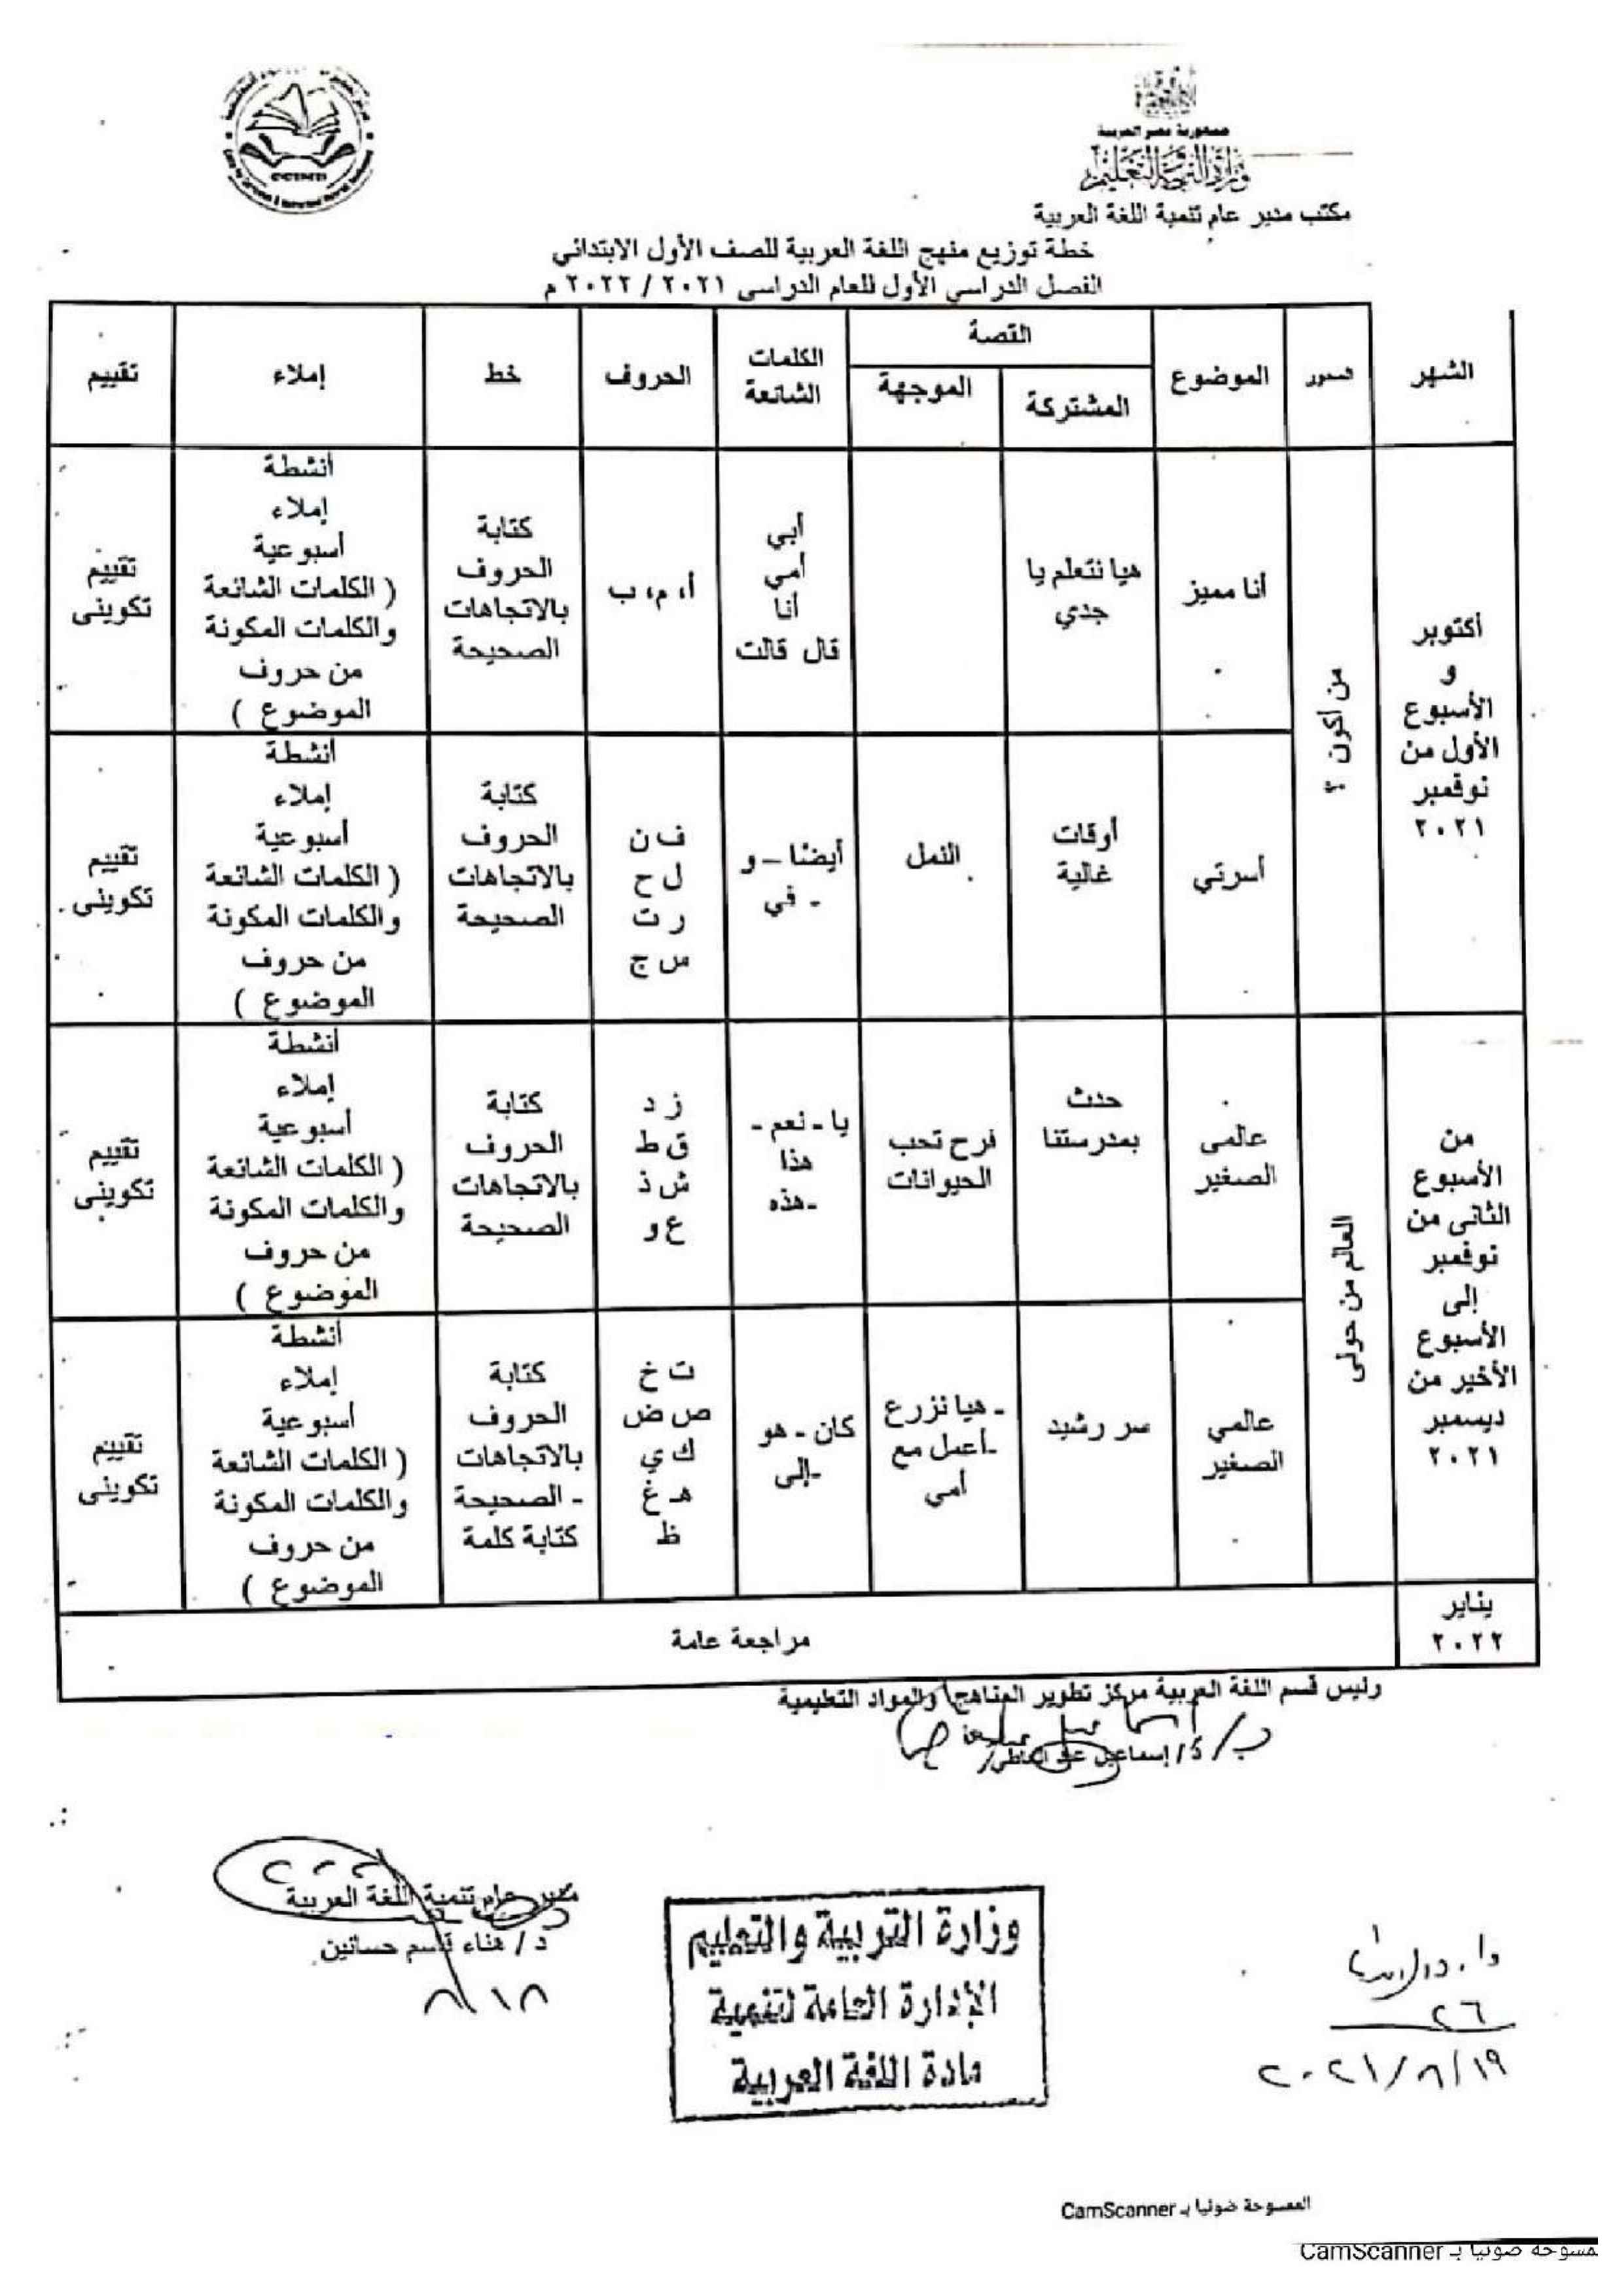 جمهورية مصر العربية
وزارة التربية والتعليم
مكتب مدير عام تنمية اللغة العربية
خطة توزيع منهج اللغة العربية للصف الأول الابتدائي
الفصل الدراسي الأول للعام الدراسى ٢٠٢١ / ٢٠٢٢ م
الشهر
المحور
الموضوع
القصة
المشتركة
الموجهة
الكلمات
الشائعة
الحروف
خط
إملاء
تقييم
أكتوبر
و
الأسبوع
الأول من
نوفمبر
٢٠٢١
من أكون ؟
أنا مميز
هيا نتعلم يا
جدي
أبي
أمي
أنا
قال قالت
أ، م، ب
كتابة
الحروف
بالاتجاهات
الصحيحة
أنشطة
إملاء
أسبوعية
( الكلمات الشائعة
والكلمات المكونة
من حروف
الموضوع )
تقييم
تكوينى
أسرتي
أوقات
غالية
النمل
أيضًا – و
- في
ف ن
ل ح
ر ت
س ج
كتابة
الحروف
بالاتجاهات
الصحيحة
أنشطة
إملاء
أسبوعية
( الكلمات الشائعة
والكلمات المكونة
من حروف
الموضوع )
تقييم
تكوينى
من
الأسبوع
الثانى من
نوفمبر
إلى
الأسبوع
الأخير من
ديسمبر
٢٠٢١
العالم من حولى
عالمى
الصغير
حدث
بمدرستنا
فرح تحب
الحيوانات
يا - نعم -
هذا
-هذه
ز د
ق ط
ش ذ
ع و
كتابة
الحروف
بالاتجاهات
الصحيحة
أنشطة
إملاء
أسبوعية
( الكلمات الشائعة
والكلمات المكونة
من حروف
الموضوع )
تقييم
تكوينى
عالمي
الصغير
سر رشيد
- هيا نزرع
-أعمل مع
أمي
كان - هو
-إلى
ث خ
ص ض
ك ي
هـ غ
ظ
كتابة
الحروف
بالاتجاهات
- الصحيحة
كتابة كلمة
أنشطة
إملاء
أسبوعية
( الكلمات الشائعة
والكلمات المكونة
من حروف
الموضوع )
تقييم
تكوينى
يناير
٢٠٢٢
مراجعة عامة
رئيس قسم اللغة العربية مركز تطوير المناهج والمواد التعليمية
د/ إسماعيل
مدير عام تنمية اللغة العربية
د / هناء قاسم حسانين
٨/١٨
وزارة التربية والتعليم
الإدارة العامة لتنمية
مادة اللغة العربية
٢٦
٢٠٢١/٨/١٩
الممسوحة ضوئيا بـ CamScanner
لممسوحة ضوئيا بـ CamScanner